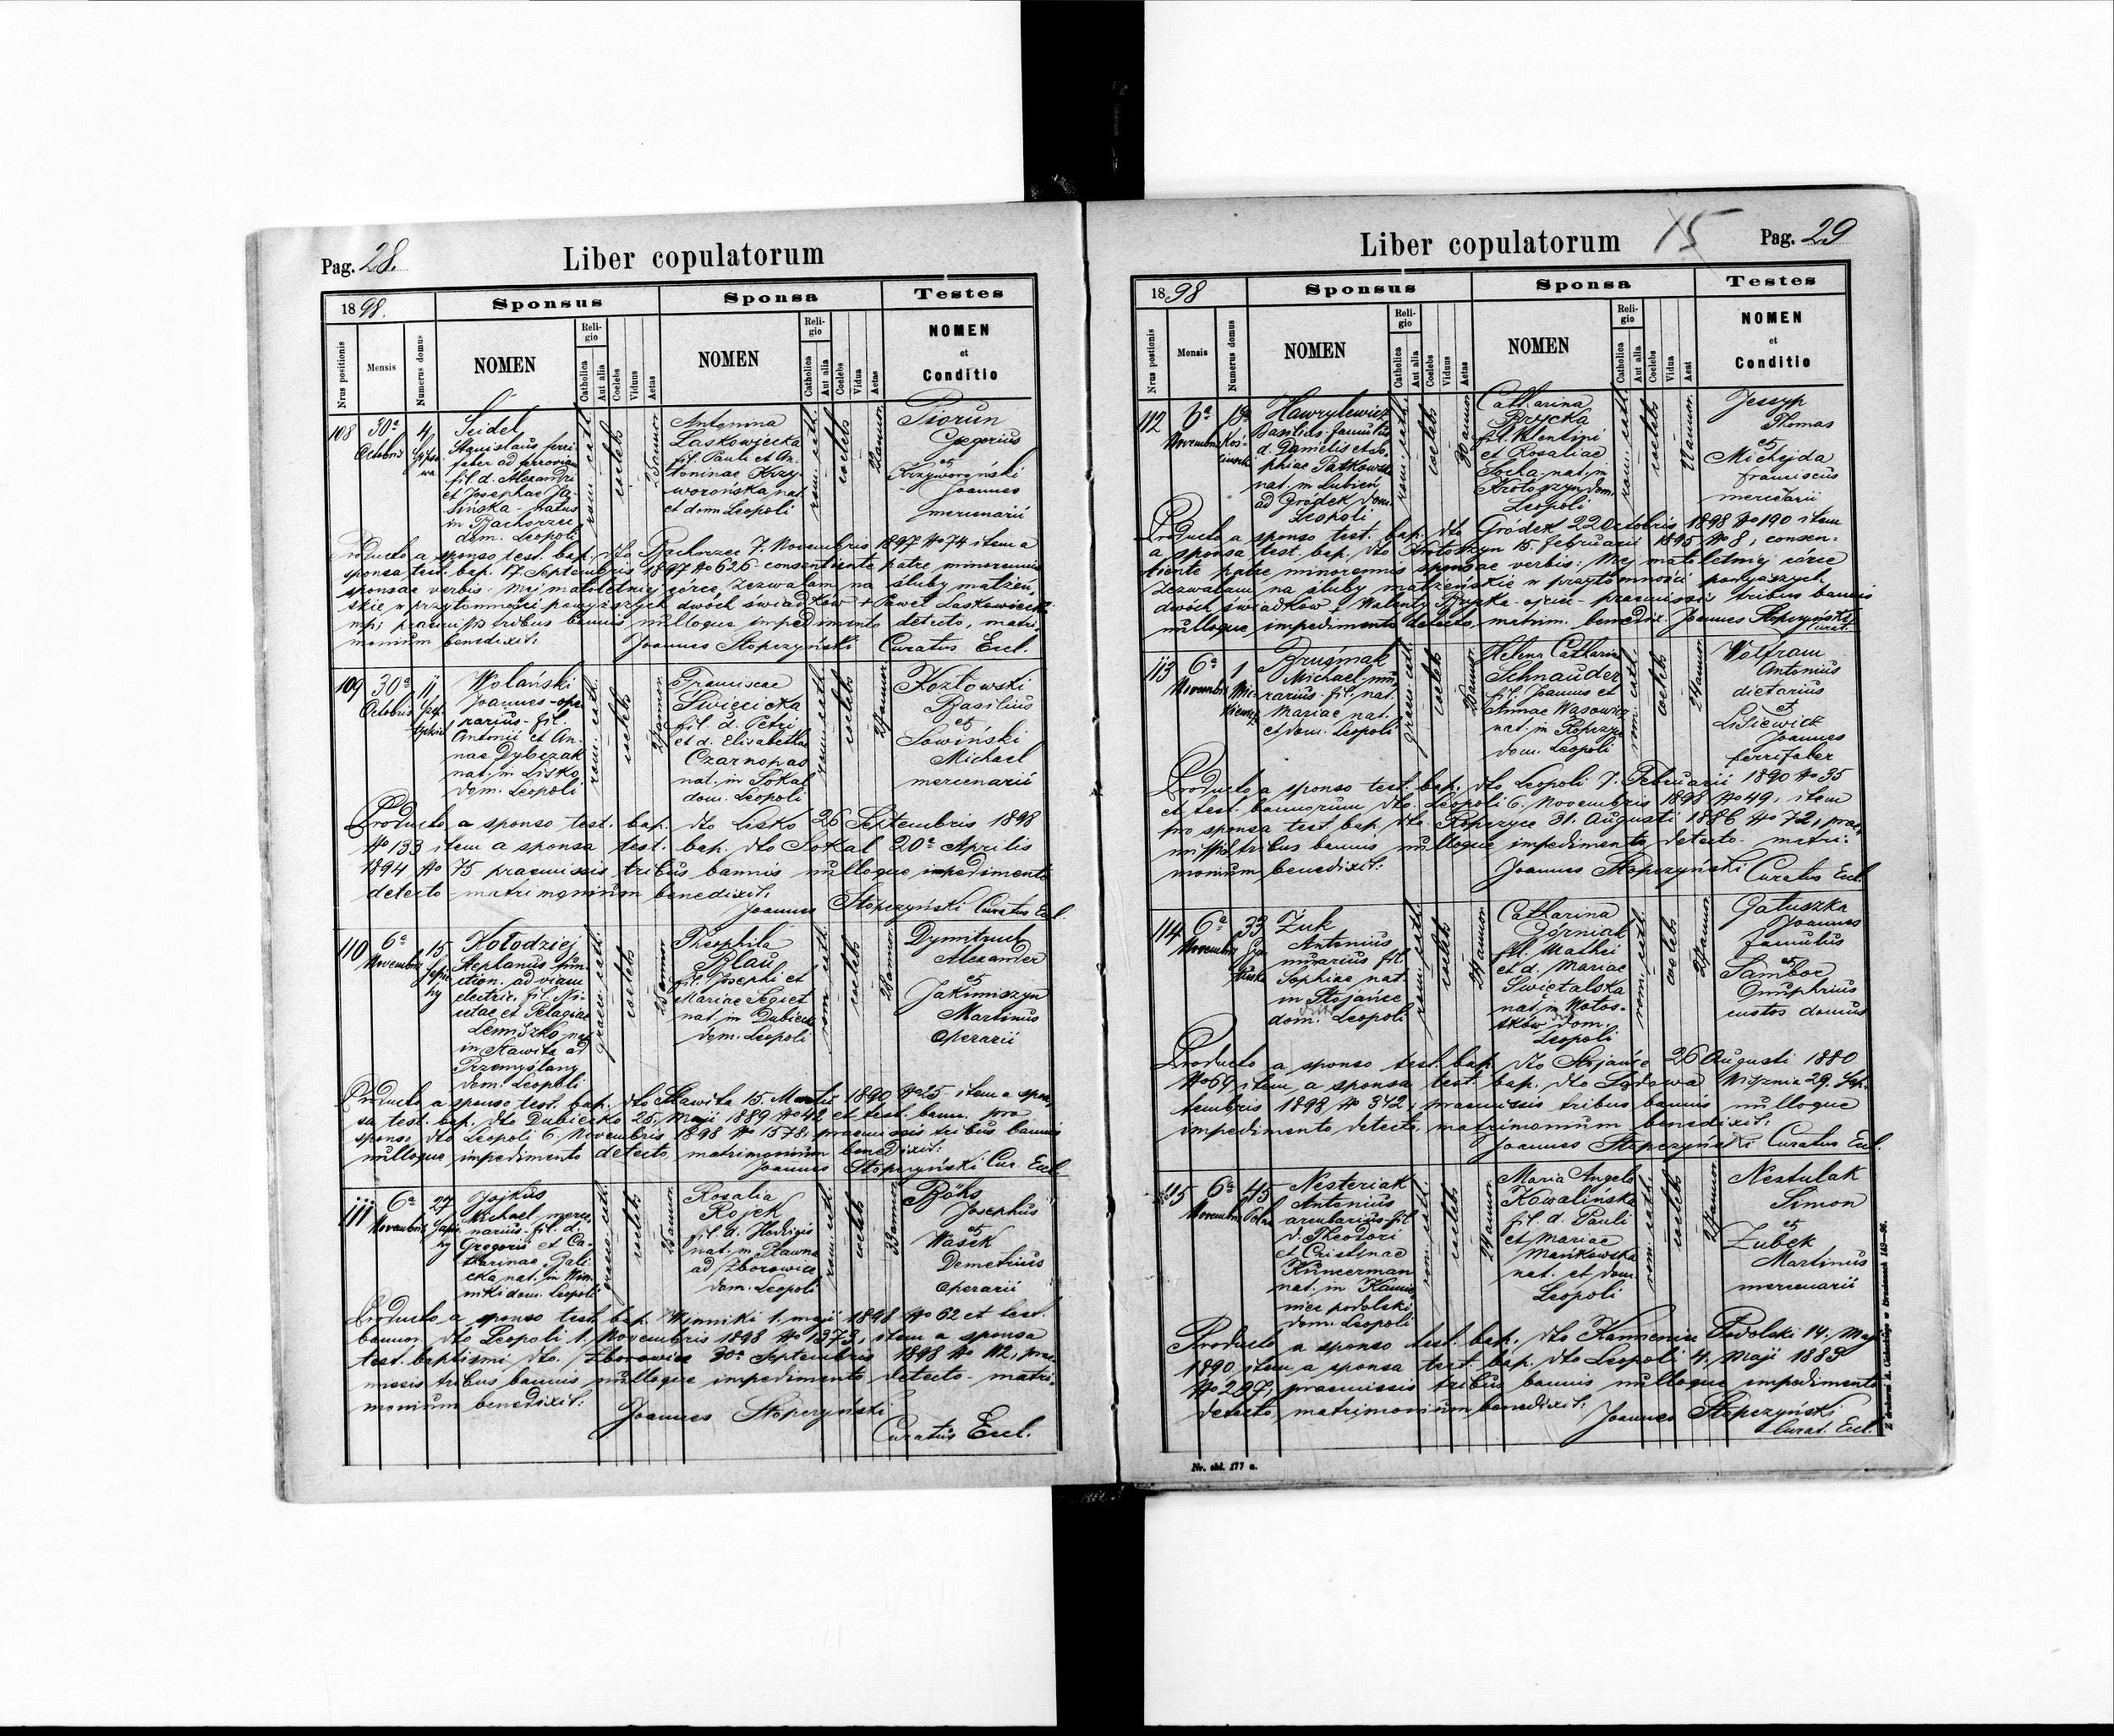 Pag. 28.
Liber copulatorum
1898.
Sponsus
Sponsa
Testes
Nrus positionis
Mensis
Numerus domus
NOMEN
Reli-
gio
Catholica
Aut alia
Coelebs
Viduus
Aetas
NOMEN
Reli-
gio
Catholica
Aut alia
Coelebs
Vidua
Aetas
NOMEN
et
Conditio
108
30a
Octobris
4
Seidel
Stanislaus ferri-
faber ad ferroviam
fil. d. Alexandri
et Josephae Ja-
sińska - natus
in Bachorzec
dom. Leopoli
rom. cath.
coelebs
Antonina
Laskowiecka
fil. Pauli et An-
toninae Krzy-
worońska nat.
et dom Leopoli
rom. cath.
coelebs
22 annor.
Piorun
Gregorius
et
Krzyworoński
Joannes
mercenarii
Producto a sponso test. bap. dto Bachorzec 7. Novembris 1897 No 74 item a
sponsa test. bap. 17. Septembris 1897 No 626 consentiente patre minorennis
sponsae verbis: Mej małoletniej córce zezwalam na śluby małżeń-
skie w przytomności powyższych dwóch świadków + Paweł Laskowiecki
mp; praemissis tribus bannis nulloque impedimento detecto, matri-
monium benedixit:
Joannes Stopczyński Curatus Eccl.
109
30a
Octobris
11
Wolański
Joannes - ope-
rarius - fil.
Antonii et An-
nae Dybczak
nat. in Lisko
dom. Leopoli
rom. cath.
coelebs
Franciscae
Święcicka
fil. d. Petri
et d. Elisabethae
Czarnopas
nat. in Sokal
dom. Leopoli
rom. cath.
coelebs
Kozłowski
Basilius
et
Sowiński
Michael
mercenarii
Producto a sponso test. bap. dto Lisko 26 Septembris 1898
No 133 item a sponsa test. bap. dto Sokal 20a Aprilis
1894 No 75 praemissis tribus bannis nulloque impedimento
detecto matrimonium benedixit:
Joannes Stopczyński Curatus Eccl.
110
6a
Novembris
15
Kołodziej
Stephanus fun-
ction. ad viam
electric. fil. Ni-
cetae et Pelagiae
Lemiszko nat.
in Sławita ad
Przemyślany
dom. Leopoli
graeco. cath.
coelebs
Theophila
Blau
fil. Josephi et
Mariae Segiet
nat. in Dubiecko
dom. Leopoli
rom. cath.
coelebs
Dymitruch
Alexander
et
Jakimiszyn
Martinus
operarii
Producto a sponso test. bap. dto Sławita 15. Martii 1890 No 25 item a spon-
sa test. bap. dto Dubiecko 25. Maji 1889 No 42 et test. bann. pro
sponso dto Leopoli 6. Novembris 1898 No 1578; praemissis tribus bannis
nulloque impedimento detecto, matrimonium benedixit:
Joannes Stopczyński Cur. Eccl.
111
6a
Novembris
27
Jojkus
Michael merce-
narius - fil. d.
Gregorii et Ca-
tharinae Bali
cka nat. in Win-
niki dom. Leopoli
graeco. cath.
coelebs
Rosalia
Rojek
fil. d. Hedvigis
nat. in Pławna
ad Zborowice
dom. Leopoli
rom. cath.
coelebs
Böhs
Josephus
et
Wasek
Demetrius
operarii
Producto a sponso test. bap. Winniki 1. maji 1898 No 62 et test.
bannor. dto Leopoli 1. Novembris 1898 No 1373, item a sponsa
test. baptismi dto. Zborowice 30a Septembris 1898 No 112, prae-
missis tribus bannis nulloque impedimento detecto - matri-
monium benedixit:
Joannes Stopczyński
Curatus Eccl.
Liber copulatorum
15
Pag. 29
1898
Sponsus
Sponsa
Testes
Nrus postionis
Mensis
Numerus domus
NOMEN
Reli-
gio
Catholica
Aut alia
Coelebs
Viduus
Aetas
NOMEN
Reli-
gio
Catholica
Aut alia
Coelebs
Vidua
Aeat
NOMEN
et
Conditio
112
6a
Novembris
Hawrylewicz
Basilius - famulus
d. Danielis et So-
phiae Patkowska
nat. in Lubień
ad Gródek dom.
Leopoli
rom. cath.
coelebs
30 annor.
Catharina
Bzycka
fil. Valentini
et Rosaliae
Socha nat. in
Krotoszyn dom.
Leopoli
rom. cath.
coelebs
Jessyp
Thomas
et
Michejda
Franciscus
mercenarii
Producto a sponso test. bap. dto Gródek 22 Octobris 1898 No 190 item
a sponsa test. bap. dto Krotoszyn 15. februarii 1895 No 8; consen-
tiente patre minorennis sponsae verbis: Mej małoletniej córce
zezwalam na śluby małżeńskie w przytomności powyższych
dwóch świadków + Walenty Bzycka - ojciec - praemissis tribus bannis
nulloque impedimento detecto, matrim. benedix. Joannes Stopczyński
Curat.
113
6a
Novembris
1
Mic-
kiewicz
Bruśniak
Michael mu-
rarius - fil. nat.
Mariae nat.
et dom. Leopoli
graeco. cath.
coelebs
Helena Catharin
Schnauder
fil. Joannis et
Annae Wąsowicz
nat. in Ropczyce
dom. Leopoli
rom. cath.
coelebs
Wolfram
Antonius
dietarius
et
Lisiewicz
Joannes
ferrifaber
Producto a sponso test. bap. dto Leopoli 7. Februarii 1890 No 35
et test. bannorum dto. Leopoli 6. Novembris 1898 No 49, item
pro sponsa test. bap. dto. Ropczyce 31. Augusti 1886 No 72, prae-
missis tribus bannis nulloque impedimento detecto - matri-
monium benedixit:
Joannes Stopczyński Curatus Eccl.
114
6a
Novembris
33
Żuk
Antonius
murarius fil
Sophiae nat.
in Stojańce
dom. Leopoli
rom. cath.
coelebs
Catharina
Górniak
fil. Mathei
et d. Mariae
Świętalska
nat. in Wołos-
tków dom.
Leopoli
rom. cath.
coelebs
Gałuszka
Joannes
famulus
et
Sambor
Onuphrius
custos domus
Producto a sponso test. bap. dto Stojańce 26 Augusti 1880
No 64 item a sponsa test. bap. dto Sądowa Wisznia 29. Sep-
tembris 1898 No 342; praemissis tribus bannis nulloque
impedimento detecto, matrimonium benedixit:
Joannes Stopczyński Curatus Eccl.
115
6a
Novembris
45
Nesteriak
Antonius
arcularius fil.
d. Theodori
et Cristinae
Küncerman
nat. in Kamie
niec podolski
dom. Leopoli
rom. cath.
coelebs
24 annor.
Maria Angela
Kowalińska
fil. d. Pauli
et Mariae
Mańkowska
nat. et dom.
Leopoli
rom. cath.
coelebs
Nestulak
Simon
et
Zubek
Martinus
mercenarii
Producto a sponso test. bap. dto Kamieniec Podolski 14. Maji
1890, item a sponsa test. bap. dto Leopoli 4. Maji 1885
No 297; praemissis tribus bannis nulloque impedimento
detecto, matrimonium benedixit:
Joannes Stopczyński
Curat. Eccl.
Nr. okł. 177 a.